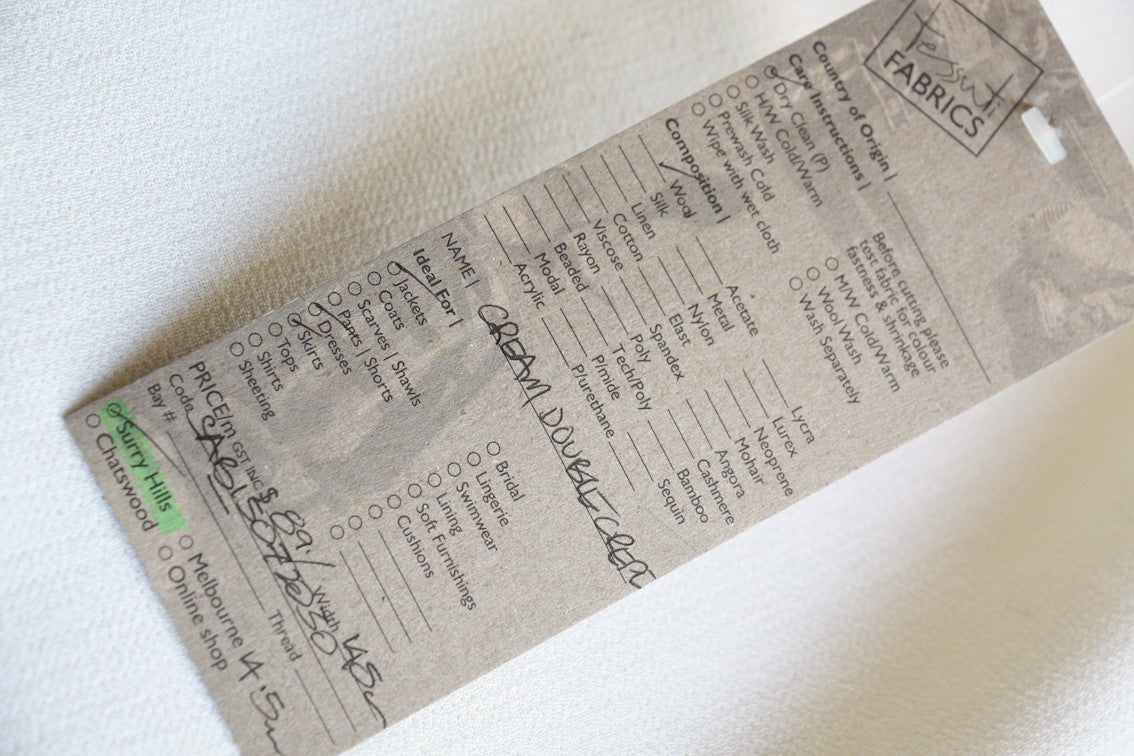 Tessuti
FABRICS
Country of Origin |
Care Instructions |
Dry Clean (P)
H/W Cold/Warm
Silk Wash
Prewash Cold
Wipe with wet cloth
Before cutting please
test fabric for colour
fastness & shrinkage
M/W Cold/Warm
Wool Wash
Wash Separately
Composition |
Wool Acetate Lycra
Silk Metal Lurex
Linen Nylon Neoprene
Cotton Elast Mohair
Viscose Spandex Angora
Rayon Poly Cashmere
Beaded Tech/Poly Bamboo
Modal P/mide Sequin
Acrylic P/urethane
NAME | CREAM DOUBLE CREPE
Ideal For |
Jackets Bridal
Coats Lingerie
Scarves | Shawls Swimwear
Pants | Shorts Lining
Dresses Soft Furnishings
Skirts Cushions
Tops
Shirts
Sheeting
PRICE/m GST INC $ 89/ Width 145
Code
Bay # Thread
Surry Hills Melbourne 14.5m
Chatswood Online shop